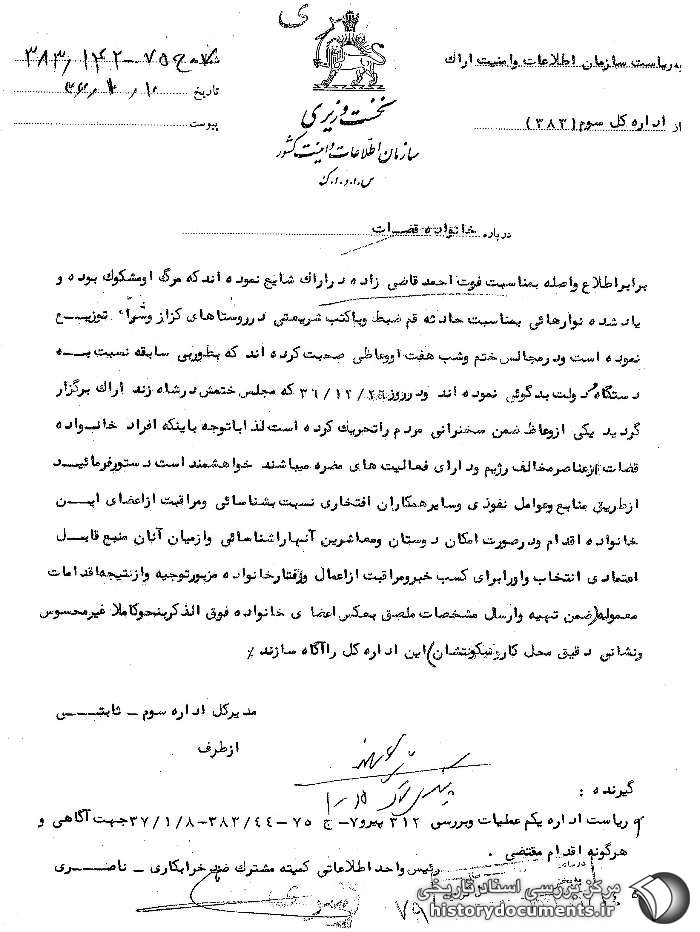 به ریاست سازمان اطلاعات وامنیت اراک
از اداره کل سوم (۳۸۳)
نخست وزیری
سازمان اطلاعات و امنیت کشور
س.ا.و.ا.ک
شماره ۳۸۳/۱۴۲-۷۵ ح
تاریخ
پیوست
درباره خانواده قضات
برابر اطلاع واصله بمناسبت فوت احمد قاضی زاده در اراک شایع نموده اند که مرگ او مشکوک بوده و
یاد شده نوارهائی بمناسبت حادثه قم ضبط وباکتب شریعتی در روستاهای کزاز وشراء توزیع
نموده است ودر مجالس ختم وشب هفت او وعاظی صحبت کرده اند که بطور بی سابقه نسبت به
دستگاه دولت بدگوئی نموده اند ودر روز ۳۶/۱۲/۲۶ که مجلس ختمش در شاه زند اراک برگزار
گردید یکی از وعاظ ضمن سخنرانی مردم را تحریک کرده است لذا باتوجه باینکه افراد خانواده
قضات از عناصر مخالف رژیم ودارای فعالیت های مضره میباشند خواهشمند است دستور فرمائید
از طریق منابع وعوامل نفوذی وسایر همکاران افتخاری نسبت بشناسائی ومراقبت از اعضای این
خانواده اقدام ودر صورت امکان دوستان ومعاشرین آنها را شناسائی واز میان آنان منبع قابل
اعتمادی انتخاب واورا برای کسب خبر ومراقبت از اعمال ورفتار خانواده مزبور توجیه واز نتیجه اقدامات
معموله (ضمن تهیه وارسال مشخصات ملصق بعکس اعضای خانواده فوق الذکر بنحو کاملا غیر محسوس
ونشانی دقیق محل کار وسکونتشان) این اداره کل را آگاه سازند ٪
مدیر کل اداره سوم ـ ثابتی
از طرف
گیرنده :
ریاست اداره یکم عملیات وبررسی ۳۱۲ پیرو ۷- ح ۷۵-۳۸۳/۴۴-۳۷/۱/۸ جهت آگاهی و
هرگونه اقدام مقتضی .
رئیس واحد اطلاعاتی کمیته مشترک ضد خرابکاری ـ ناصری
مرکز بررسی اسناد تاریخی
historydocuments.ir